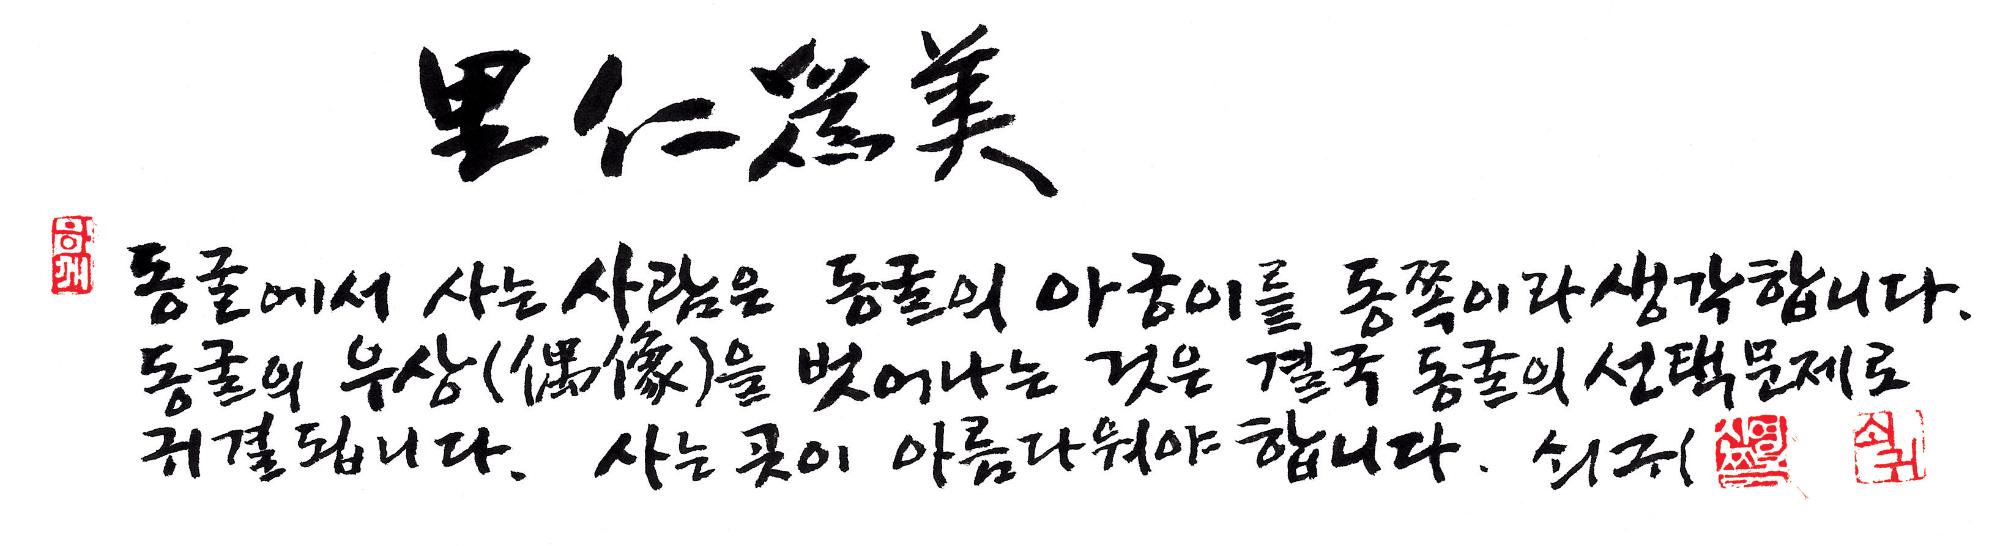 里仁爲美
함께
동굴에서 사는 사람은 동굴의 아궁이를 동쪽이라 생각합니다.
동굴의 우상(偶像)을 벗어나는 것은 결국 동굴의 선택문제로
귀결됩니다. 사는 곳이 아름다워야 합니다. 쇠귀
쇠귀